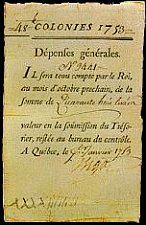 48# COLONIES 1753
Dépenses générales.
N° 9421
IL sera tenu compte par le Roi,
au mois d'octobre prochain, de la
somme de Quarante huit livres
valeur en la soumission du Tréso-
rier, restée au bureau du contrôle.
A Québec, le Janvier 1753
Bigot